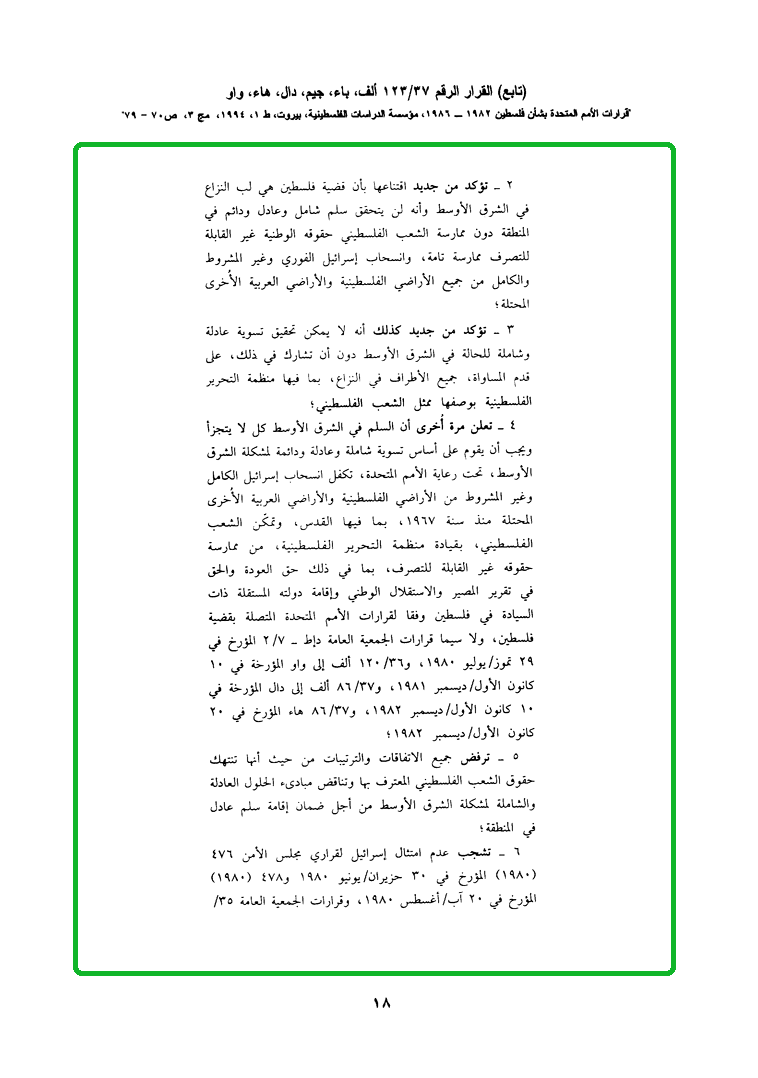 (تابع) القرار الرقم ١٢٣/٣٧ ألف، باء، جيم، دال، هاء، واو
"قرارات الأمم المتحدة بشأن فلسطين ١٩٨٢ ــ ١٩٨٦، مؤسسة الدراسات الفلسطينية، بيروت، ط ١، ١٩٩٤، مج ٣، ص ٧٠ - ٧٩"
٢ ــ تؤكد من جديد اقتناعها بأن قضية فلسطين هي لب النزاع
في الشرق الأوسط وأنه لن يتحقق سلم شامل وعادل ودائم في
المنطقة دون ممارسة الشعب الفلسطيني حقوقه الوطنية غير القابلة
للتصرف ممارسة تامة، وانسحاب إسرائيل الفوري وغير المشروط
والكامل من جميع الأراضي الفلسطينية والأراضي العربية الأُخرى
المحتلة؛
٣ ــ تؤكد من جديد كذلك أنه لا يمكن تحقيق تسوية عادلة
وشاملة للحالة في الشرق الأوسط دون أن تشارك في ذلك، على
قدم المساواة، جميع الأطراف في النزاع، بما فيها منظمة التحرير
الفلسطينية بوصفها ممثل الشعب الفلسطيني؛
٤ ــ تعلن مرة أُخرى أن السلم في الشرق الأوسط كل لا يتجزأ
ويجب أن يقوم على أساس تسوية شاملة وعادلة ودائمة لمشكلة الشرق
الأوسط، تحت رعاية الأمم المتحدة، تكفل انسحاب إسرائيل الكامل
وغير المشروط من الأراضي الفلسطينية والأراضي العربية الأُخرى
المحتلة منذ سنة ١٩٦٧، بما فيها القدس، وتمكّن الشعب
الفلسطيني، بقيادة منظمة التحرير الفلسطينية، من ممارسة
حقوقه غير القابلة للتصرف، بما في ذلك حق العودة والحق
في تقرير المصير والاستقلال الوطني وإقامة دولته المستقلة ذات
السيادة في فلسطين وفقا لقرارات الأمم المتحدة المتصلة بقضية
فلسطين، ولا سيما قرارات الجمعية العامة دإط ــ ٢/٧ المؤرخ في
٢٩ تموز/يوليو ١٩٨٠، و١٢٠/٣٦ ألف إلى واو المؤرخة في ١٠
كانون الأول/ديسمبر ١٩٨١، و٨٦/٣٧ ألف إلى دال المؤرخة في
١٠ كانون الأول/ديسمبر ١٩٨٢، و٨٦/٣٧ هاء المؤرخ في ٢٠
كانون الأول/ديسمبر ١٩٨٢؛
٥ ــ ترفض جميع الاتفاقات والترتيبات من حيث أنها تنتهك
حقوق الشعب الفلسطيني المعترف بها وتناقض مبادىء الحلول العادلة
والشاملة لمشكلة الشرق الأوسط من أجل ضمان إقامة سلم عادل
في المنطقة؛
٦ ــ تشجب عدم امتثال إسرائيل لقراري مجلس الأمن ٤٧٦
(١٩٨٠) المؤرخ في ٣٠ حزيران/يونيو ١٩٨٠ و٤٧٨ (١٩٨٠)
المؤرخ في ٢٠ آب/أغسطس ١٩٨٠، وقرارات الجمعية العامة ٣٥/
١٨